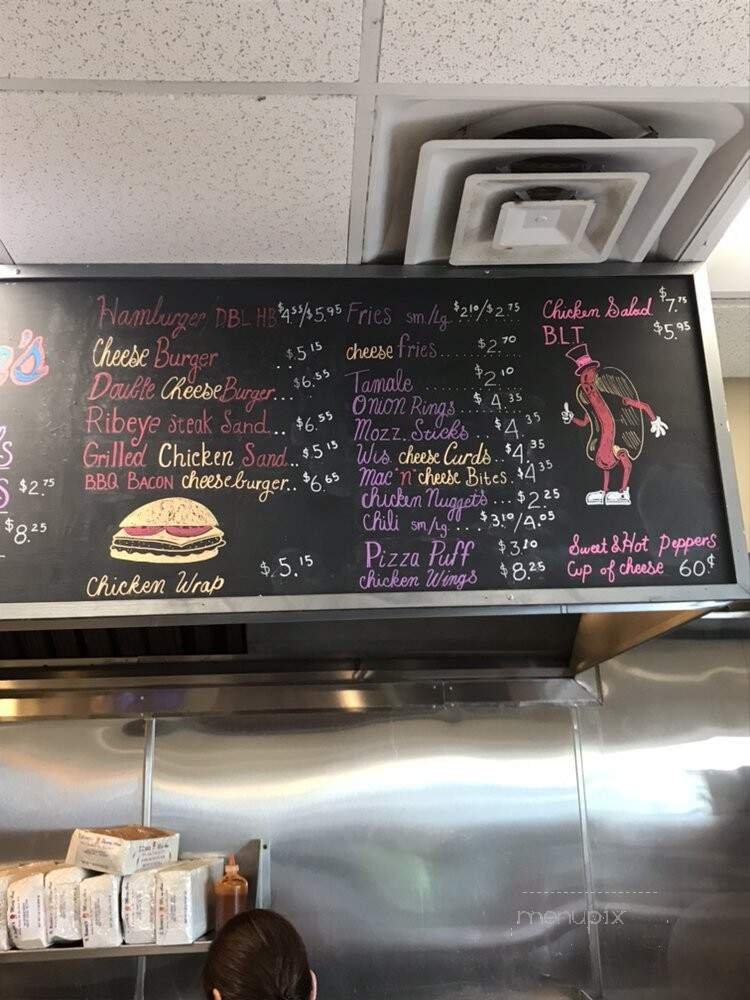 's
s
s $2.75
$8.25
Hamburger DBL HB $4.55/$5.95
Cheese Burger ..$5.15
Double Cheese Burger... $6.55
Ribeye Steak Sand.. $6.55
Grilled Chicken Sand... $5.15
BBQ BACON cheeseburger.. $6.65
Chicken Wrap $5.15
Fries sm/lg. $2.10/$2.75
cheese fries..... $2.70
Tamale ...... $2.10
Onion Rings.... $4.35
Mozz. Sticks $4.35
Wis cheese Curds.. $4.35
Mac "n" cheese Bites. $4.35
chicken Nuggets... $2.25
Chili sm/lg.... $3.10/4.05
Pizza Puff $3.10
chicken Wings $8.25
Chicken Salad $7.75
BLT $5.95
Sweet & Hot Peppers
Cup of cheese 60¢
menupix